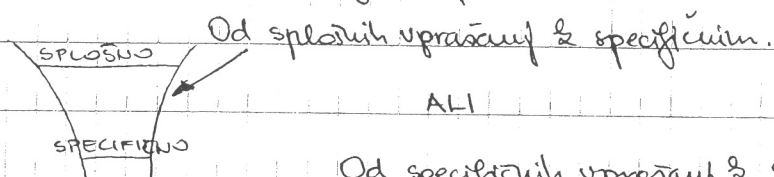 Od splošnih vprašanj k specifičnim.
SPLOŠNO
ALI
SPECIFIČNO
Od specifičnih vprašanj k